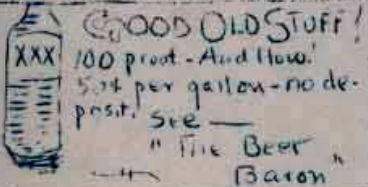 GOOD OLD STUFF!
XXX
100 proof - And How!
50¢ per gallon - no de-
posit. See —
"The Beer
Baron"